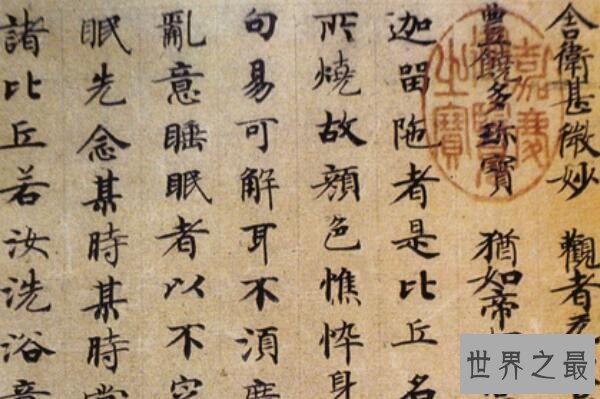 舍衛甚微妙 觀者
豐饒多珍寶 猶如帝
迦留陁者是比丘名
所燒故顏色憔悴身
句易可解耳不湏
亂意睡眠者以不
眠先念某時某時當
諸比丘若汝洗浴
嘉慶
御覽
之寶
世界之最